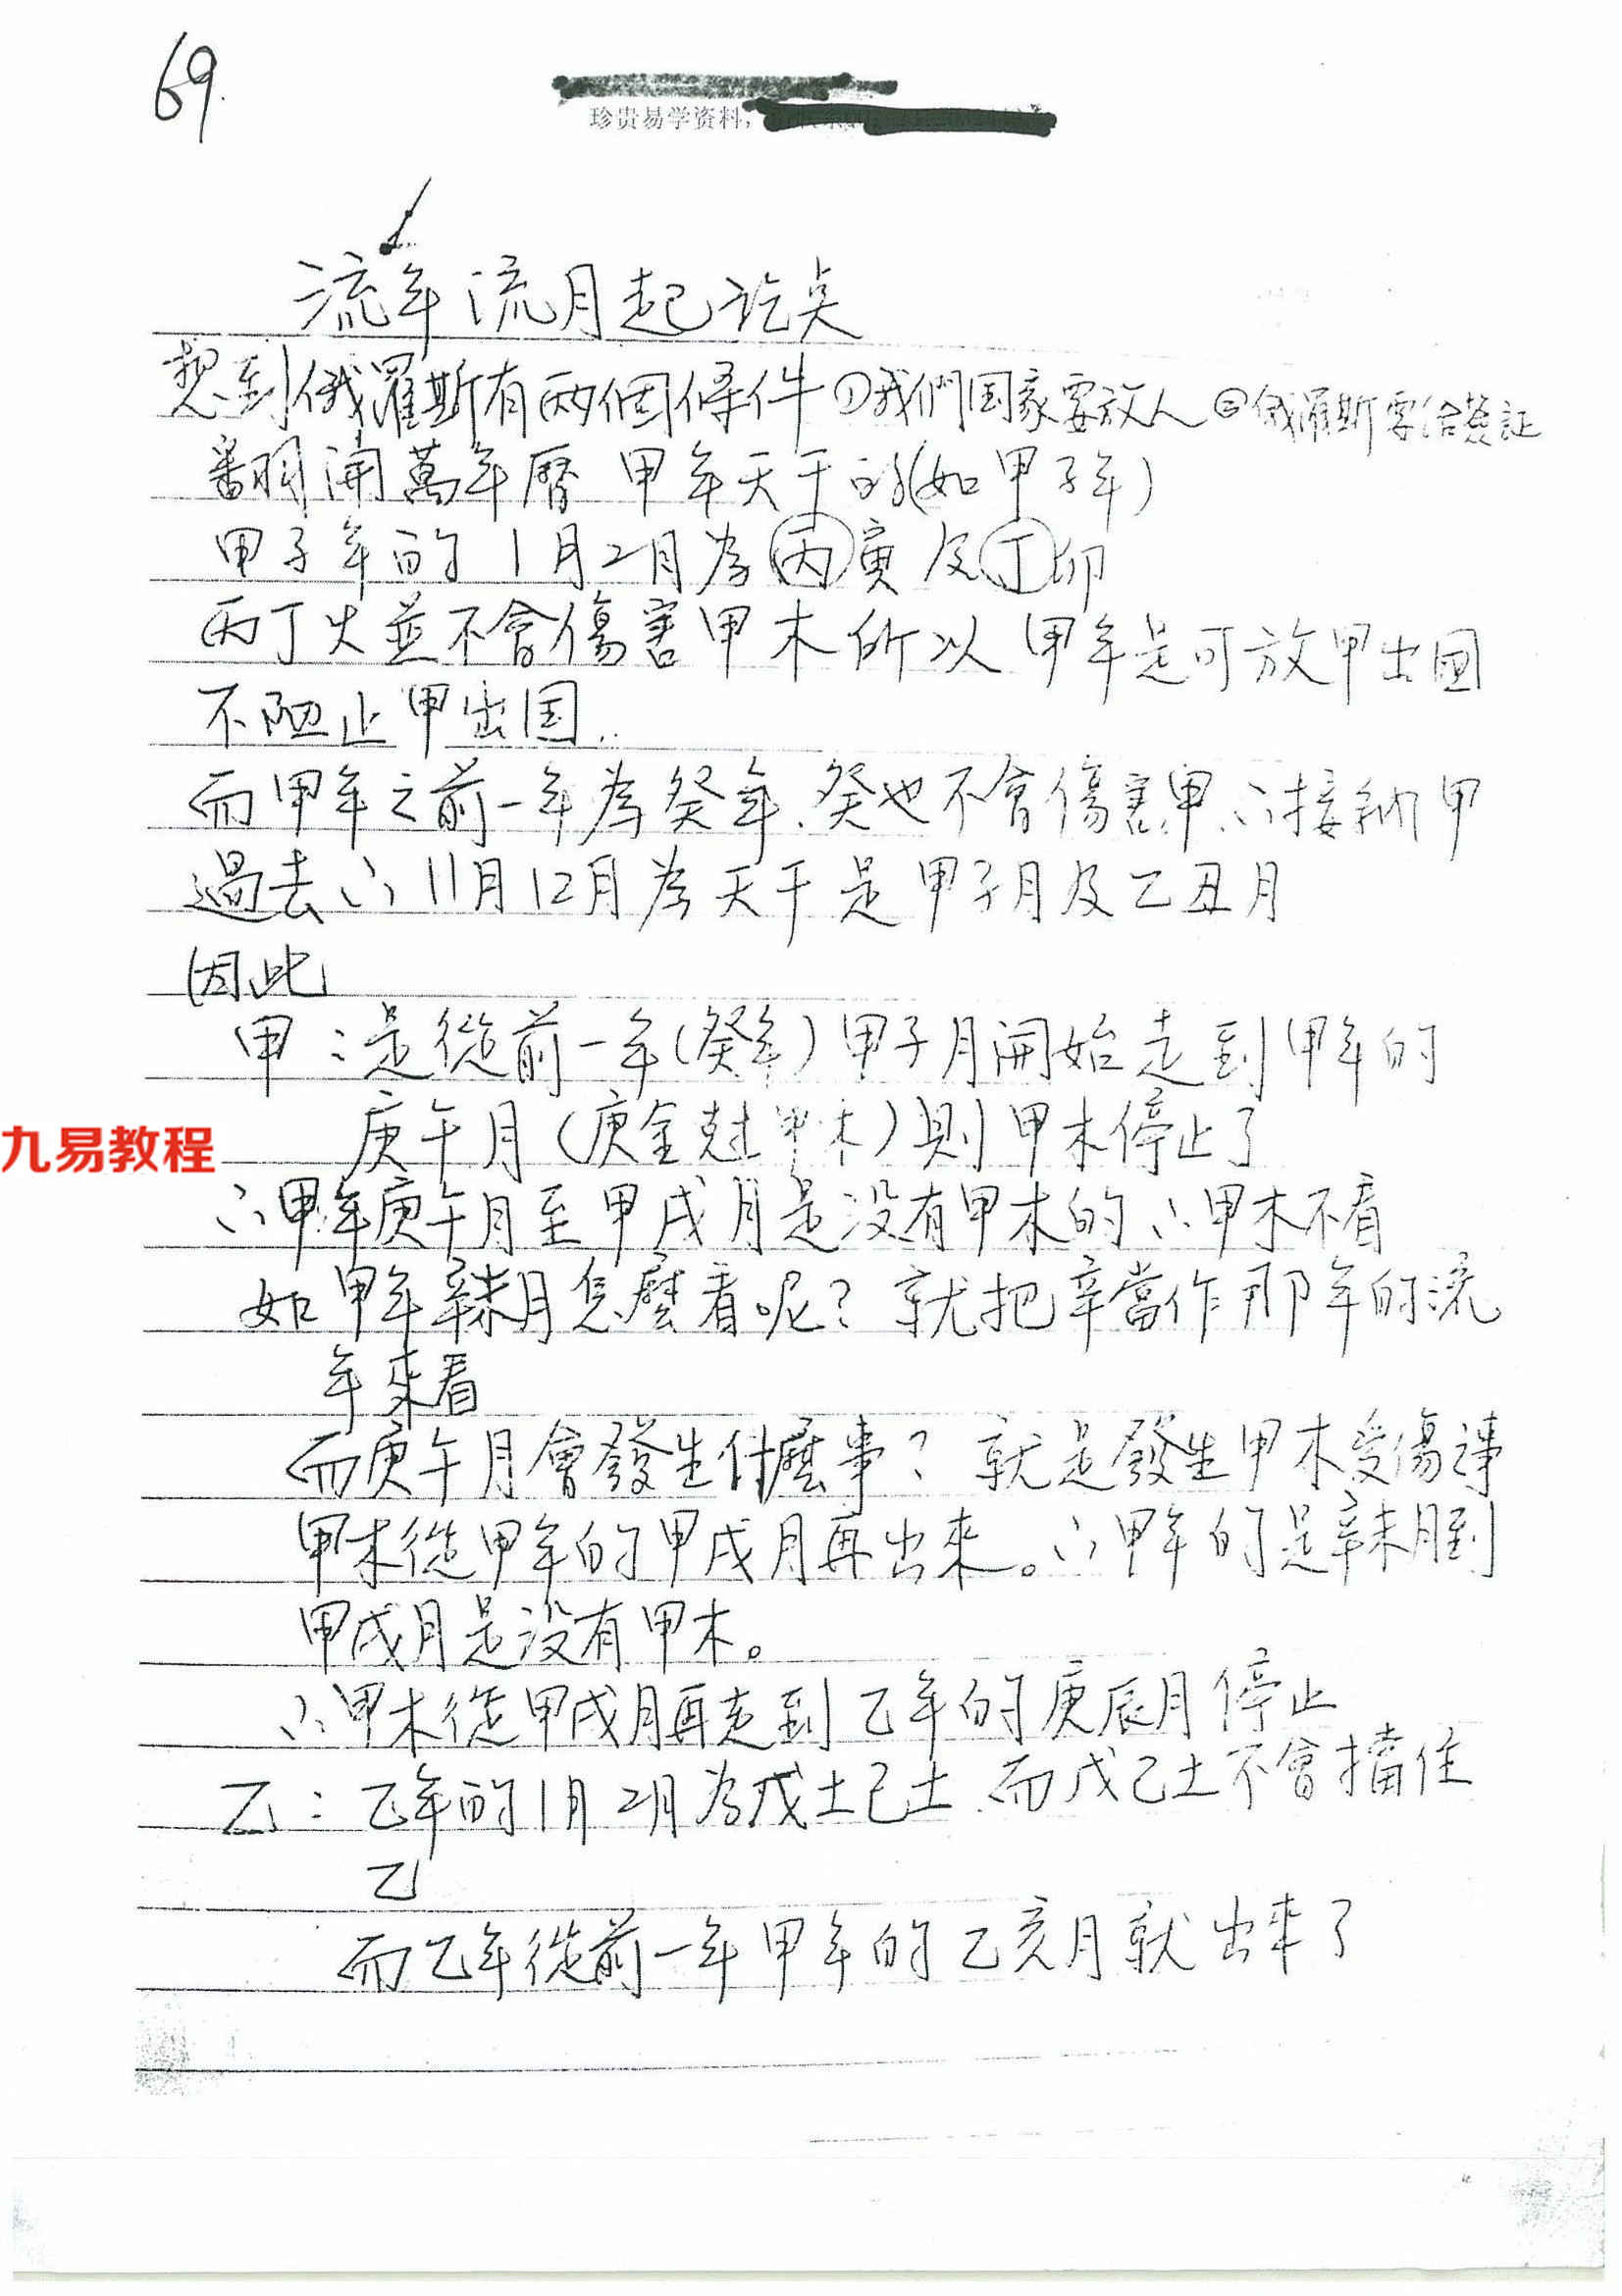 69.
珍贵易学资料,
流年流月起訖点
想到俄羅斯有兩個條件①我們国家要放人②俄羅斯要给簽証
翻開萬年曆 甲年天干的(如甲子年)
甲子年的1月2月為丙寅及丁卯
丙丁火並不會傷害甲木所以甲年是可放甲出国
不阻止甲出国.
而甲年之前一年為癸年.癸也不會傷害甲∴接納甲
過去∴11月12月為天干是甲子月及乙丑月
因此
甲:是從前一年(癸年)甲子月開始走到甲年的
庚午月(庚金尅甲木)則甲木停止了
九易教程
∴甲年庚午月至甲戌月是没有甲木的∴甲木不看
如甲年辛未月怎麼看呢?就把辛當作那年的流
年來看
而庚午月會發生什麼事?就是發生甲木受傷事
甲木從甲年的甲戌月再出來。∴甲年的是辛未月到
甲戌月是没有甲木。
∴甲木從甲戌月再走到乙年的庚辰月停止
乙:乙年的1月2月為戊土己土.而戊己土不會擋住
乙
而乙年從前一年甲年的乙亥月就出來了